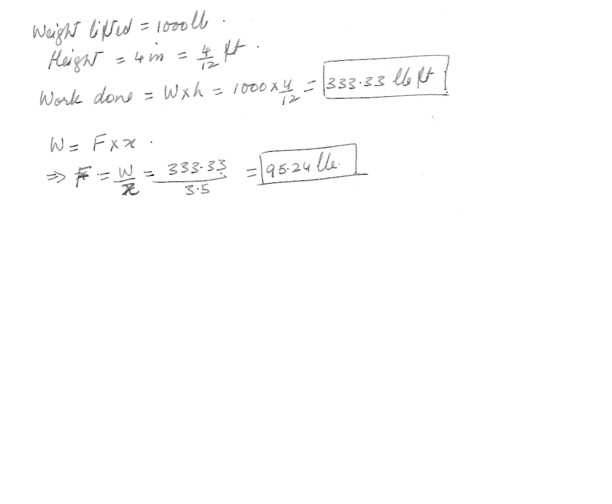 Weight lifted = 1000 lb.
Height = 4 in = 4/12 ft.
Work done = W×h = 1000 × 4/12 = 333.33 lb ft
W = F×x.
⇒ F = W/x = 333.33/3.5 = 95.24 lb.